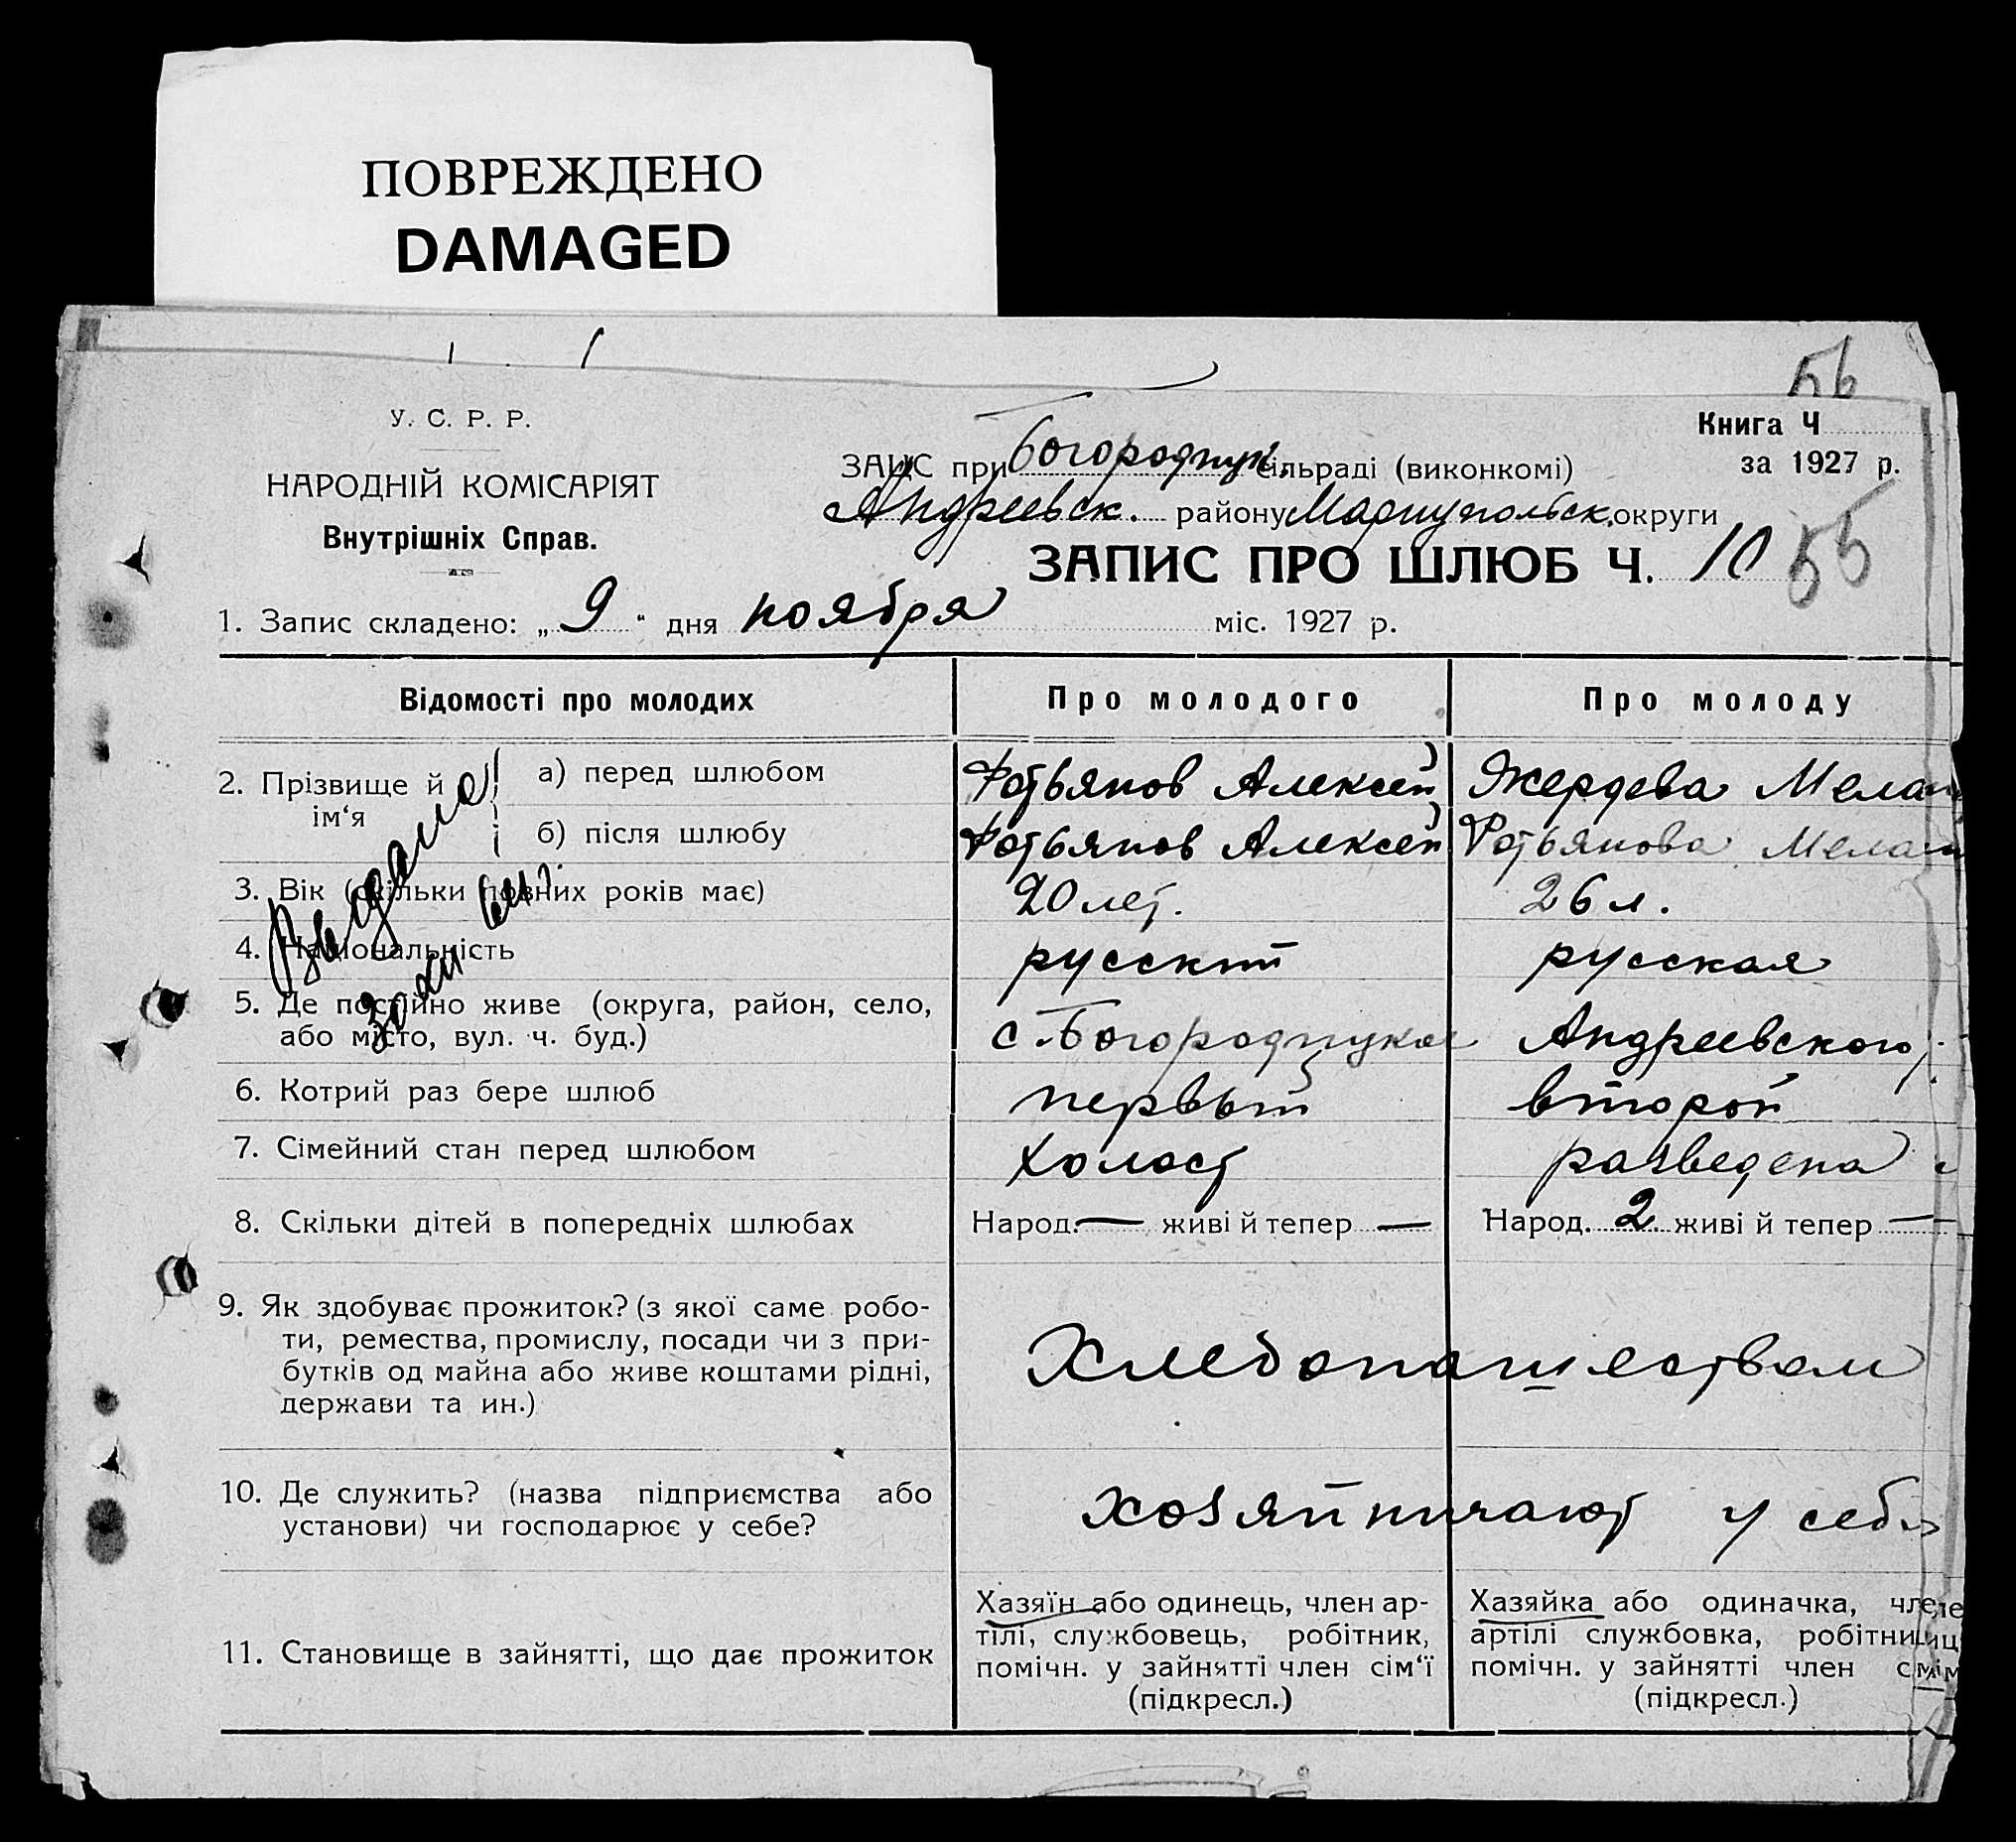 ПОВРЕЖДЕНО
DAMAGED
56
У. С. Р. Р.
НАРОДНІЙ КОМІСАРІЯТ
Внутрішніх Справ.
Книга Ч
за 1927 р.
ЗАЦС при Богородицк. сільраді (виконкомі)
Андреевск. району Мариупольск. округи
ЗАПИС ПРО ШЛЮБ Ч. 10
55
1. Запис складено: „ 9 “ дня ноября міс. 1927 р.
Відомості про молодих Про молодого Про молоду
2. Прізвище й ім‘я
а) перед шлюбом Фотьянов Алексей Жердева Мела
б) після шлюбу Фотьянов Алексей Фотьянова Мела
3. Вік (скільки повних років має) 20 лет. 26 л.
4. Національність русский русская
5. Де постійно живе (округа, район, село,
або місто, вул. ч. буд.) с. Богородицкое Андреевского р.
6. Котрий раз бере шлюб первый второй
7. Сімейний стан перед шлюбом холост разведена
8. Скільки дітей в попередніх шлюбах Народ. — живі й тепер — Народ. 2 живі й тепер —
9. Як здобуває прожиток? (з якої саме робо-
ти, ремества, промислу, посади чи з при-
бутків од майна або живе коштами рідні,
держави та ин.)
Хлебопашеством
10. Де служить? (назва підприємства або
установи) чи господарює у себе?
хозяйничают у себя
11. Становище в зайнятті, що дає прожиток
Хазяїн або одинець, член ар-
тілі, службовець, робітник,
помічн. у зайнятті член сім‘ї
(підкресл.)
Хазяйка або одиначка, чле
артілі службовка, робітниц
помічн. у зайнятті член сім
(підкресл.)